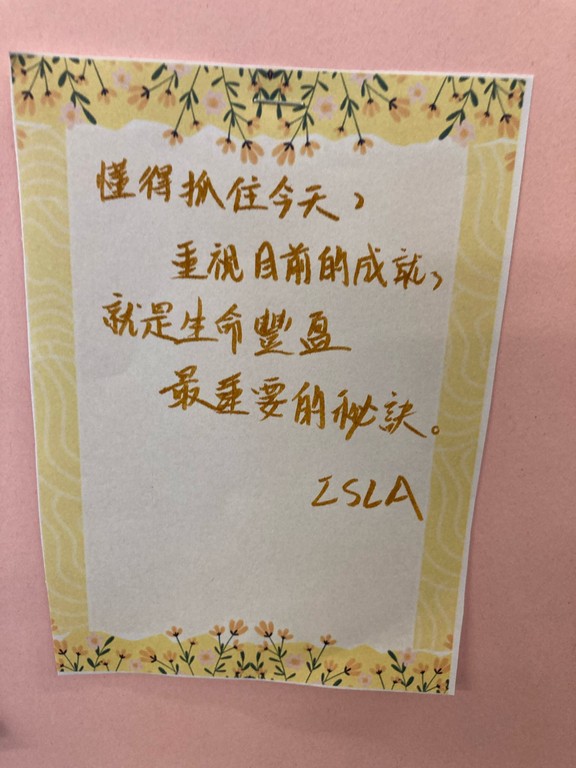 懂得抓住今天，
重視目前的成就，
就是生命豐盈
最重要的秘訣。
ISLA